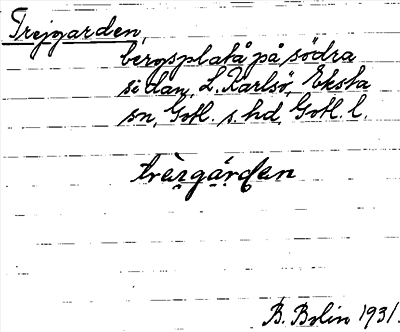 Trejgarden,
bergsplatå på södra
sidan, L. Karlsö, Eksta
sn, Gotl. s. hd, Gotl. l.
trèi̯gárden
B. Bolin 1931.